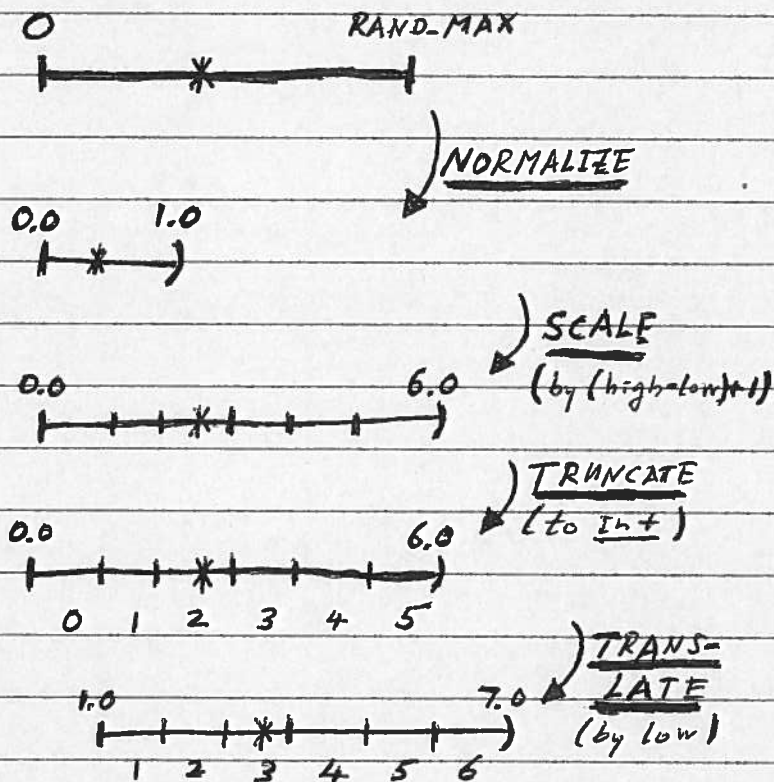 0 RAND_MAX
NORMALIZE
0.0 1.0
SCALE
0.0 6.0 (by (high-low)+1)
TRUNCATE
(to Int)
0.0 6.0
0 1 2 3 4 5
TRANS-
LATE
1.0 7.0
(by low)
1 2 3 4 5 6